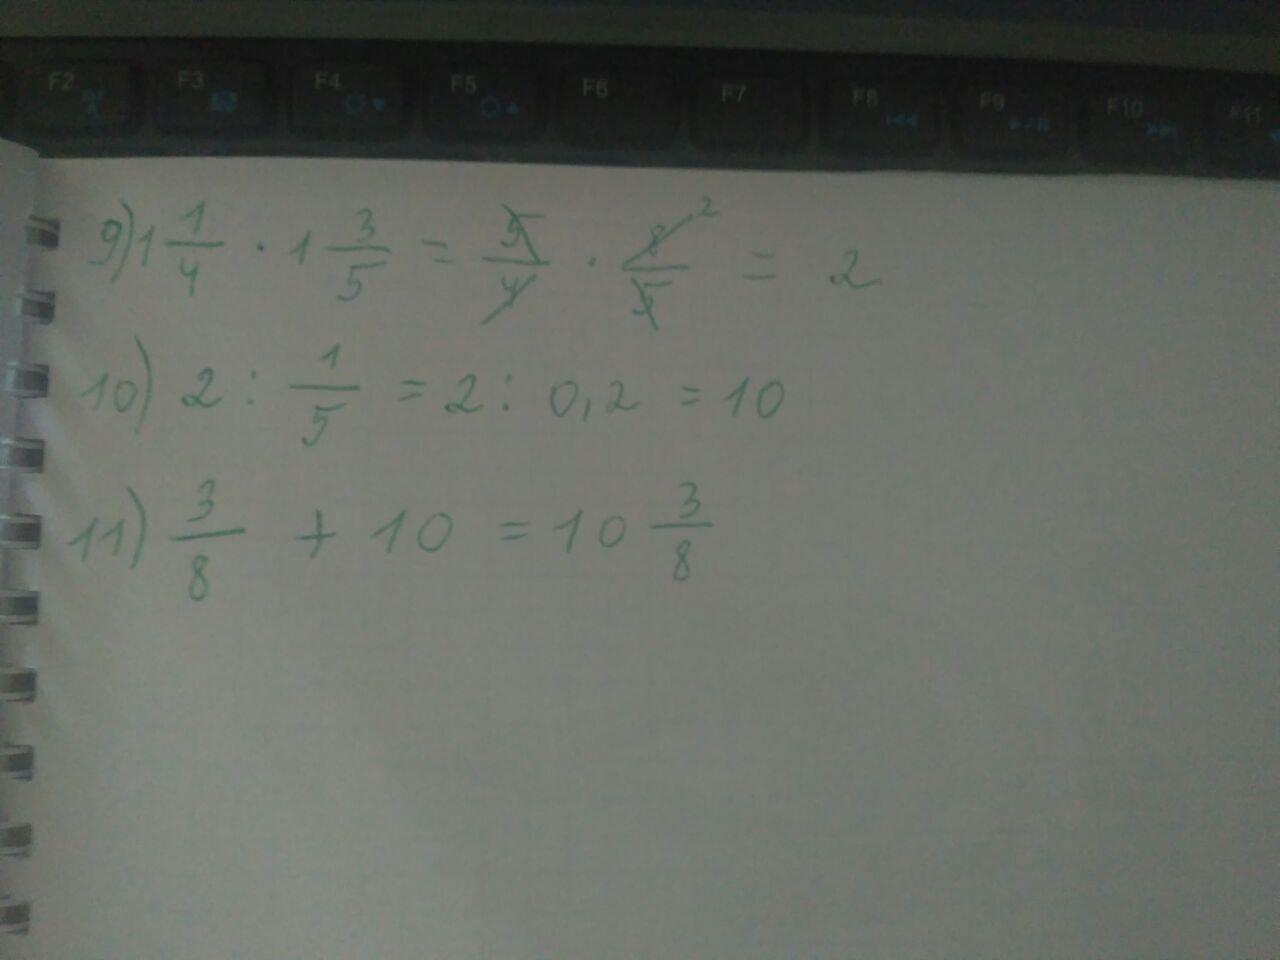 F2 F3 F4 F5 F6 F7 F8 F9 F10 F11
9) 1 1/4 · 1 3/5 = 5/4 · 8/5 2 = 2
10) 2 : 1/5 = 2 : 0,2 = 10
11) 3/8 + 10 = 10 3/8